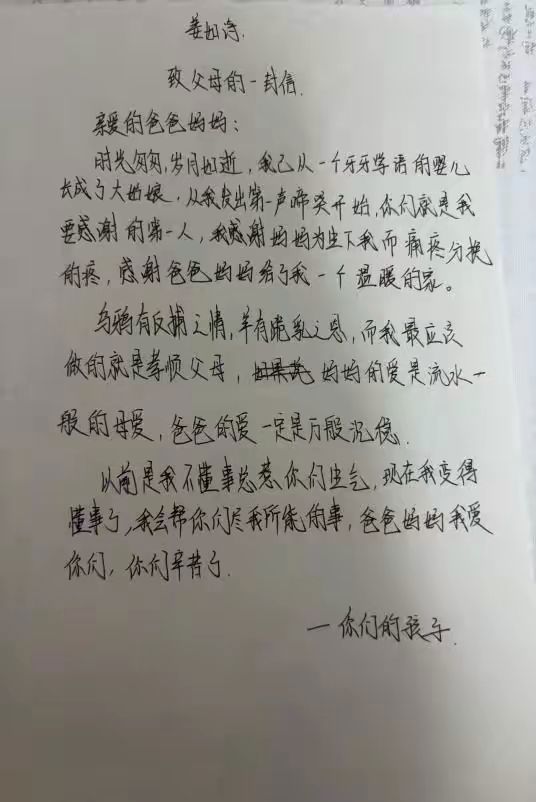 姜如诗.
致父母的一封信.
亲爱的爸爸妈妈：
时光匆匆，岁月如逝，我已从一个牙牙学语的婴儿
长成了大姑娘．从我发出第一声啼哭开始，你们就是我
要感谢的第一人，我感谢妈妈为生下我而痛疼分娩
的疼，感谢爸爸妈妈给了我一个温暖的家。
乌鸦有反捕之情，羊有跪乳之恩，而我最应该
做的就是孝顺父母，妈妈的爱是流水一
般的母爱，爸爸的爱一定是万般沉稳．
以前是我不懂事总惹你们生气，现在我变得
懂事了，我会帮你们尽我所能的事，爸爸妈妈我爱
你们，你们辛苦了．
一你们的孩子．